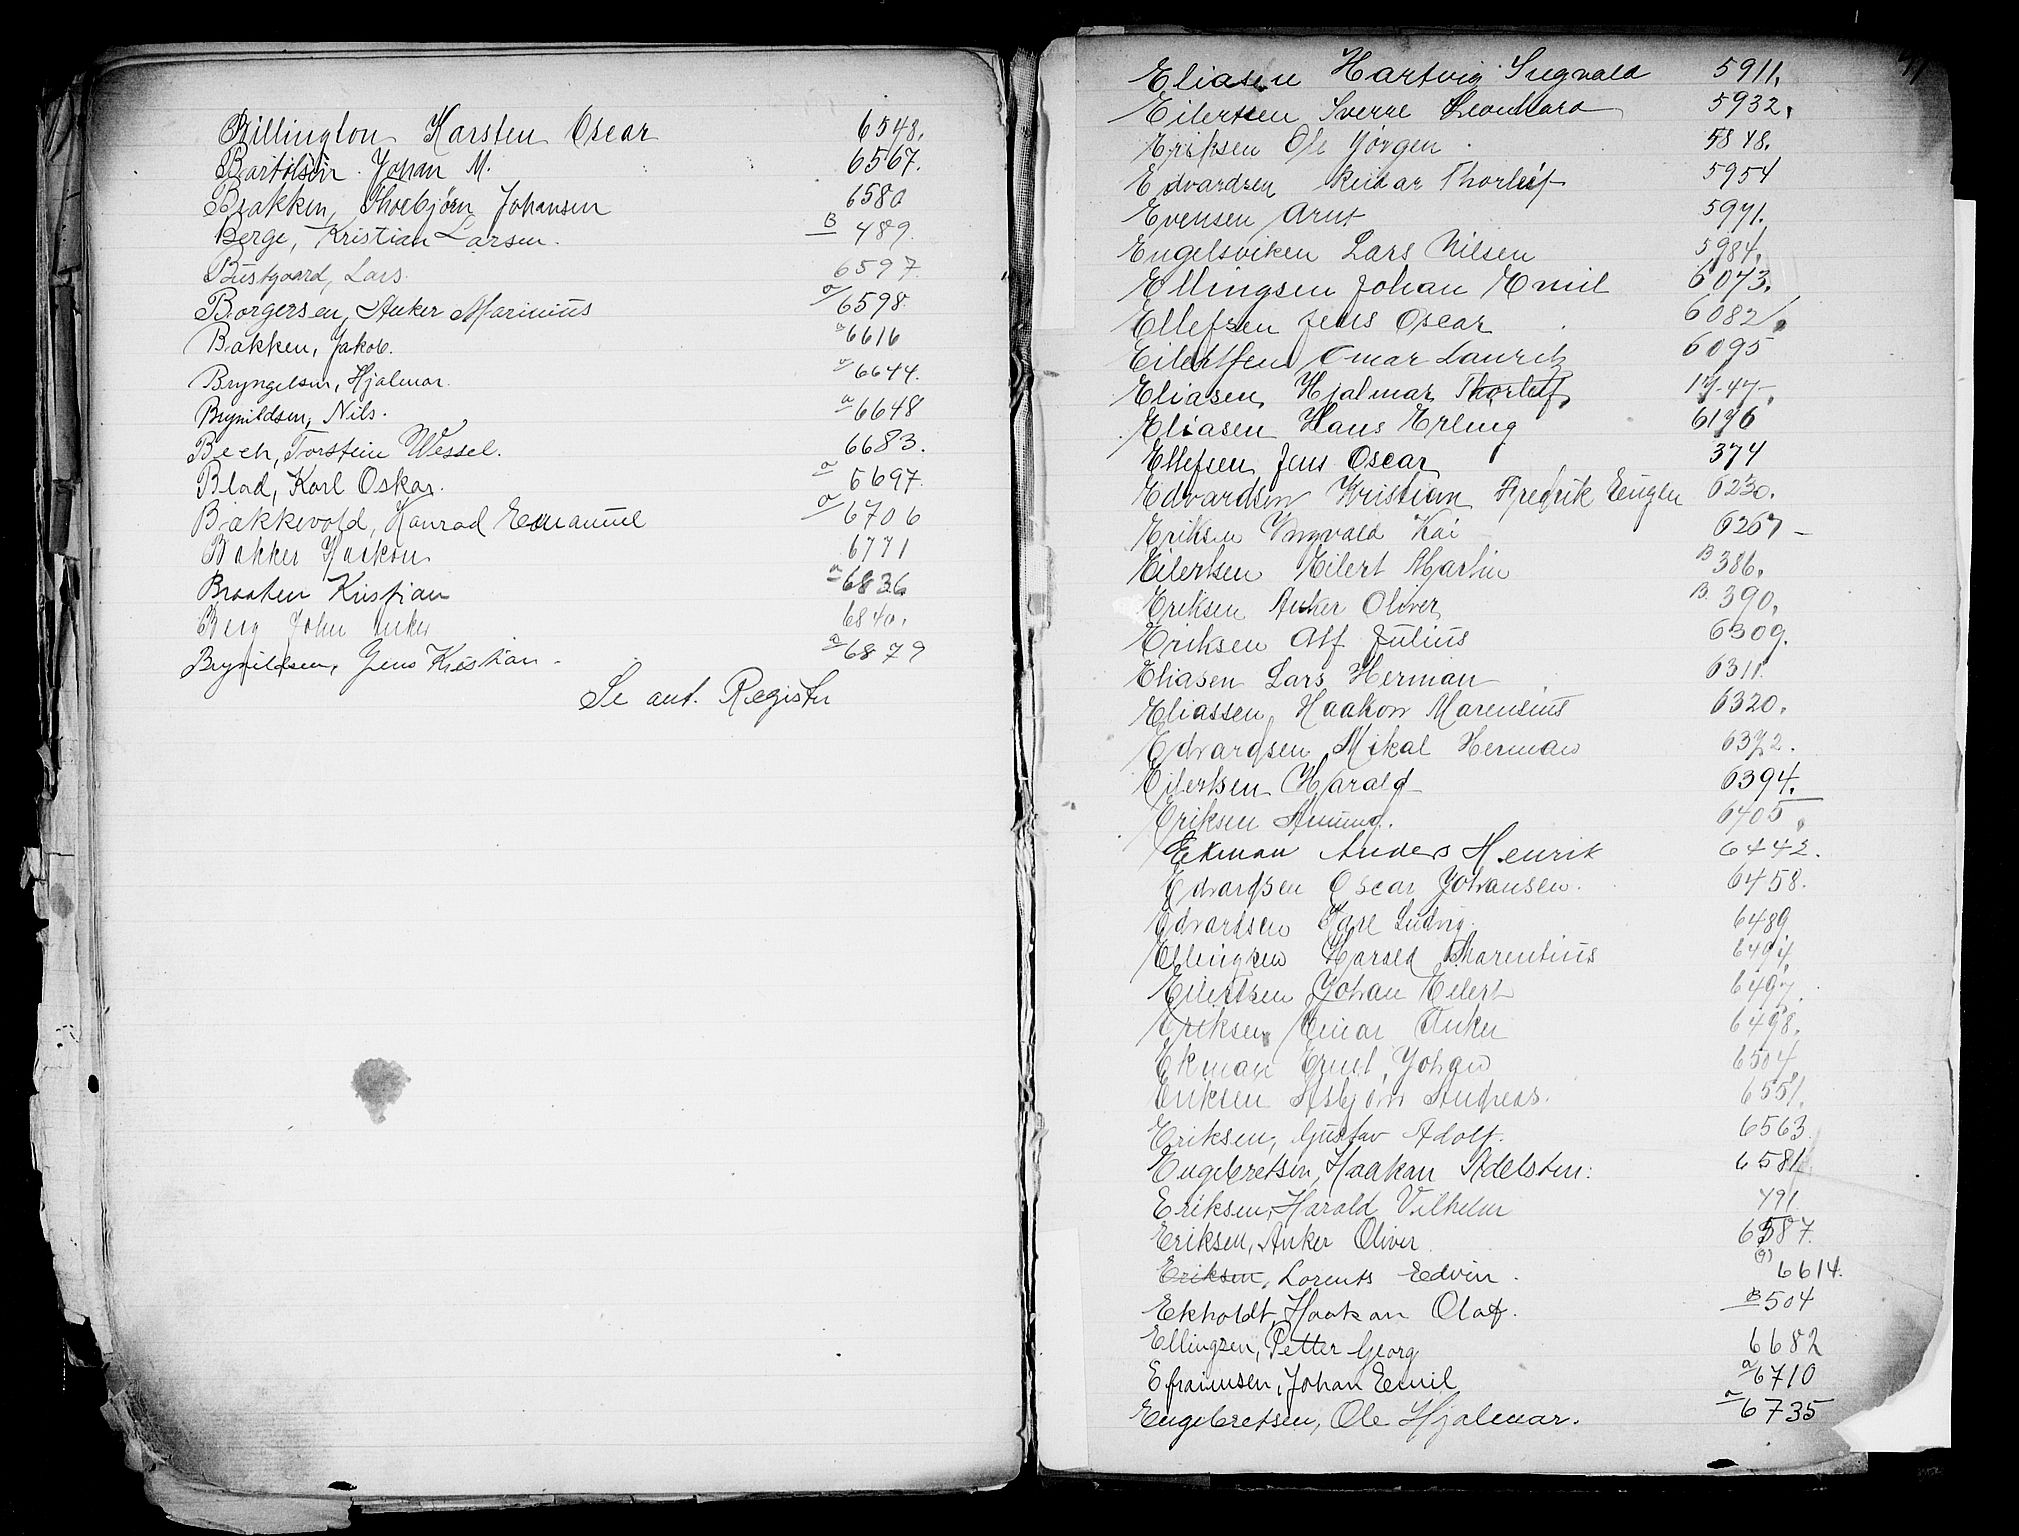 Billington Karsten Oscar 6548.
Bartolsin Johan M. 6567.
Brakken, Thorbjørn Johansen 6580
Berge, Kristian Larsen. B 489.
Bustgaard, Lars. 6597
Borgersen, Anker Marinius a/6598
Bakken, Jakob. a 6616
Bryngelsen, Hjalmar. a 6644.
Brynildsen, Nils. a 6648
Bech, Torstein Wessel. 6683.
Blad, Karl Oskar. a 6697
Bakkevold, Konrad Emanuel a/6706
Bakker Haakon 6771
Braaten Kristian a 6836
Berg John Anker 6840.
Brynildsen, Jens Kristian. a 6879
Se ant. Register
Eliasen Hartvig Sigvald 5911.
Eilertsen Sverre Leonhard 5932.
Eriksen Ole Jørgen 5848.
Edvardsen Reidar Thorleif 5954
Evensen Arnt 5971.
Engelsviken Lars Nilsen 5984.
Ellingsen Johan Emil 6073.
Ellefsen Jens Oscar 6082
Eilertsen Omar Lauritz 6095
Eliasen Hjalmar Thorleif 17-47-
Eliasen Hans Erling 6196
Ellefsen Jens Oscar 374
Edvardsen Kristian Fredrik Eugen 6230.
Eriksen Yngvald Kai 6267 -
Eilertsen Eilert Martin B 386.
Eriksen Anker Oliver B. 390.
Eriksen Alf Julius 6309.
Eliasen Lars Herman 6311.
Eliassen Haakon Marensius 6320.
Edvardsen Mikal Herman 6372.
Eilertsen Harald 6394.
Eriksen Amund. 6405
Ekman Anders Henrik 6442.
Edvardsen Oscar Johansen. 6458.
Edvardsen Kare Ludvig. 6489
Ellingsen Harald Marentius 6494
Eilertsen Johan Eilert 6497.
Eriksen Einar Anker 6498.
Ekman Ernst Johan 6504
Eriksen Asbjørn Andreas. 6551.
Eriksen, Gustav Adolf. 6563.
Engebretsen, Haakan Adelsten: 6581
Eriksen, Harald Vilhelm 491
Eriksen, Anker Oliver 6587.
Eriksen, Lorents Edvin. (9) 6614.
Ekholdt, Haakan Olaf. B 504
Ellingsen, Petter Georg 6682
Efraimsen, Johan Emil a 6710
Engebretsen, Ole Hjalmar. a 6735